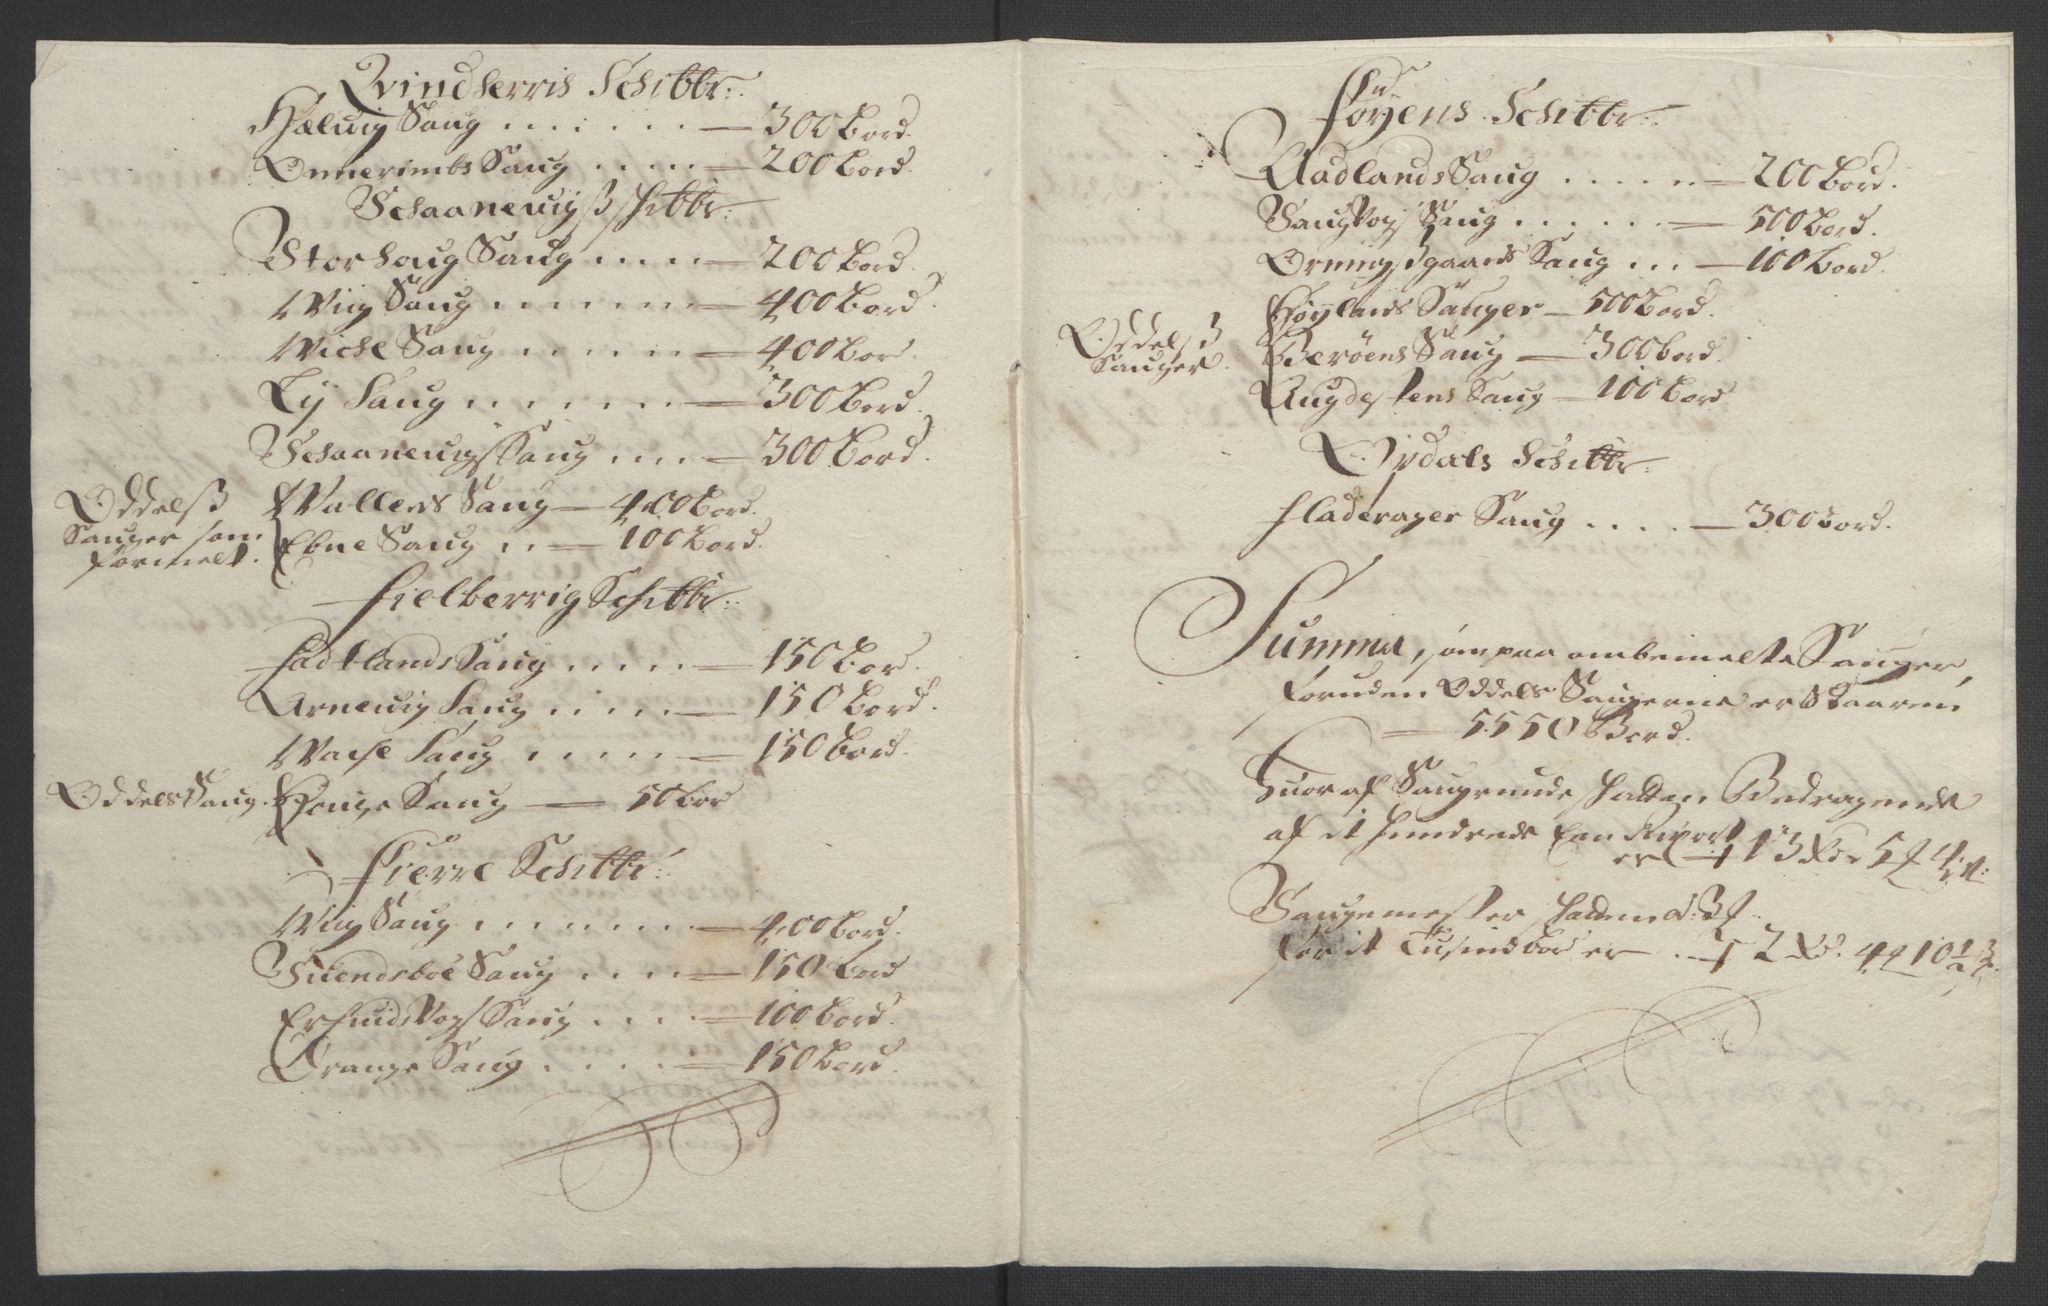 Qvindherris Schibbr:
Hæluig Saug . . . . . . . — 300 bord.
Onnerimbs Saug . . . . . — 200 bord.
Schaaneuigs schibbr:
Storhoug Saug . . . . . — 200 bord.
Wiig Saug . . . . . . . — 400 bord.
Wiche Saug . . . . . . — 400 bord.
Ly Saug . . . . . . . — 300 bord.
Schaaneuigs Saug . . . . — 300 bord.
Oddelss Sauger som formelt.
Wallens Saug — 400 bord.
Ebne Saug . . — 100 bord.
Fielberrig Schibbr:
Hadtlands Saug . . . . . — 150 bord.
Arneuig Saug . . . . . — 150 bord.
Waese Saug . . . . . . — 150 bord.
Oddels Saug. Houge Saug — 50 bord
Fierre Schibbr:
Wiig Saug . . . . . . . — 400 bord.
Suendsboe Saug . . . . — 150 bord
Ersuids Vogs Saug . . . . — 100 bord.
Orange Saug . . . . — 150 bord.
Føyens Schibbr:
Aadlands Saug . . . . . — 200 bord.
Saugvogs Saug . . . . . . — 500 bord.
Orningsgaards Saug . . . — 100 bord.
Oddelss Sauger.
Høylands Sauger — 500 bord.
Berøens Saug — 300 bord.
Augdestens Saug — 100 bord
Opdals Schibbr:
Fladerager Saug . . . . — 300 bord.
Summa, som paa ombemelte Sauger,
foruden Oddels Saugerne er Skaaren
— 5550 Bord.
Huoraf Saugrende hatten Bedragende
af it hundrede
er — 13 Rdr 5 4
Saugemester hatten
for it Tusind bord er — 2 Rd. 4 10 1/2